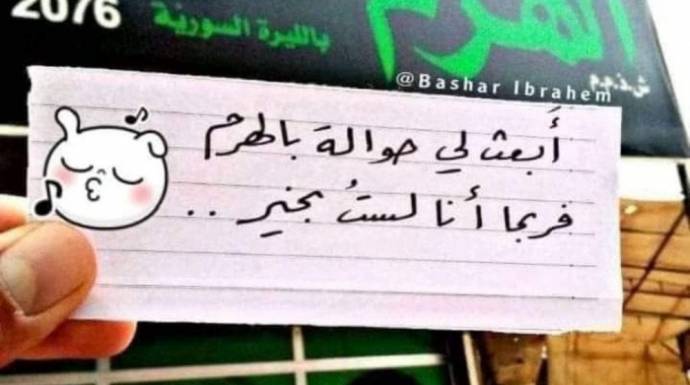 2076
الهرم
بالليرة السورية
ش.ذ.م.م
@Bashar Ibrahem
أَبعث لي حوالة بالهرم
فربما أنا لستُ بخير ..